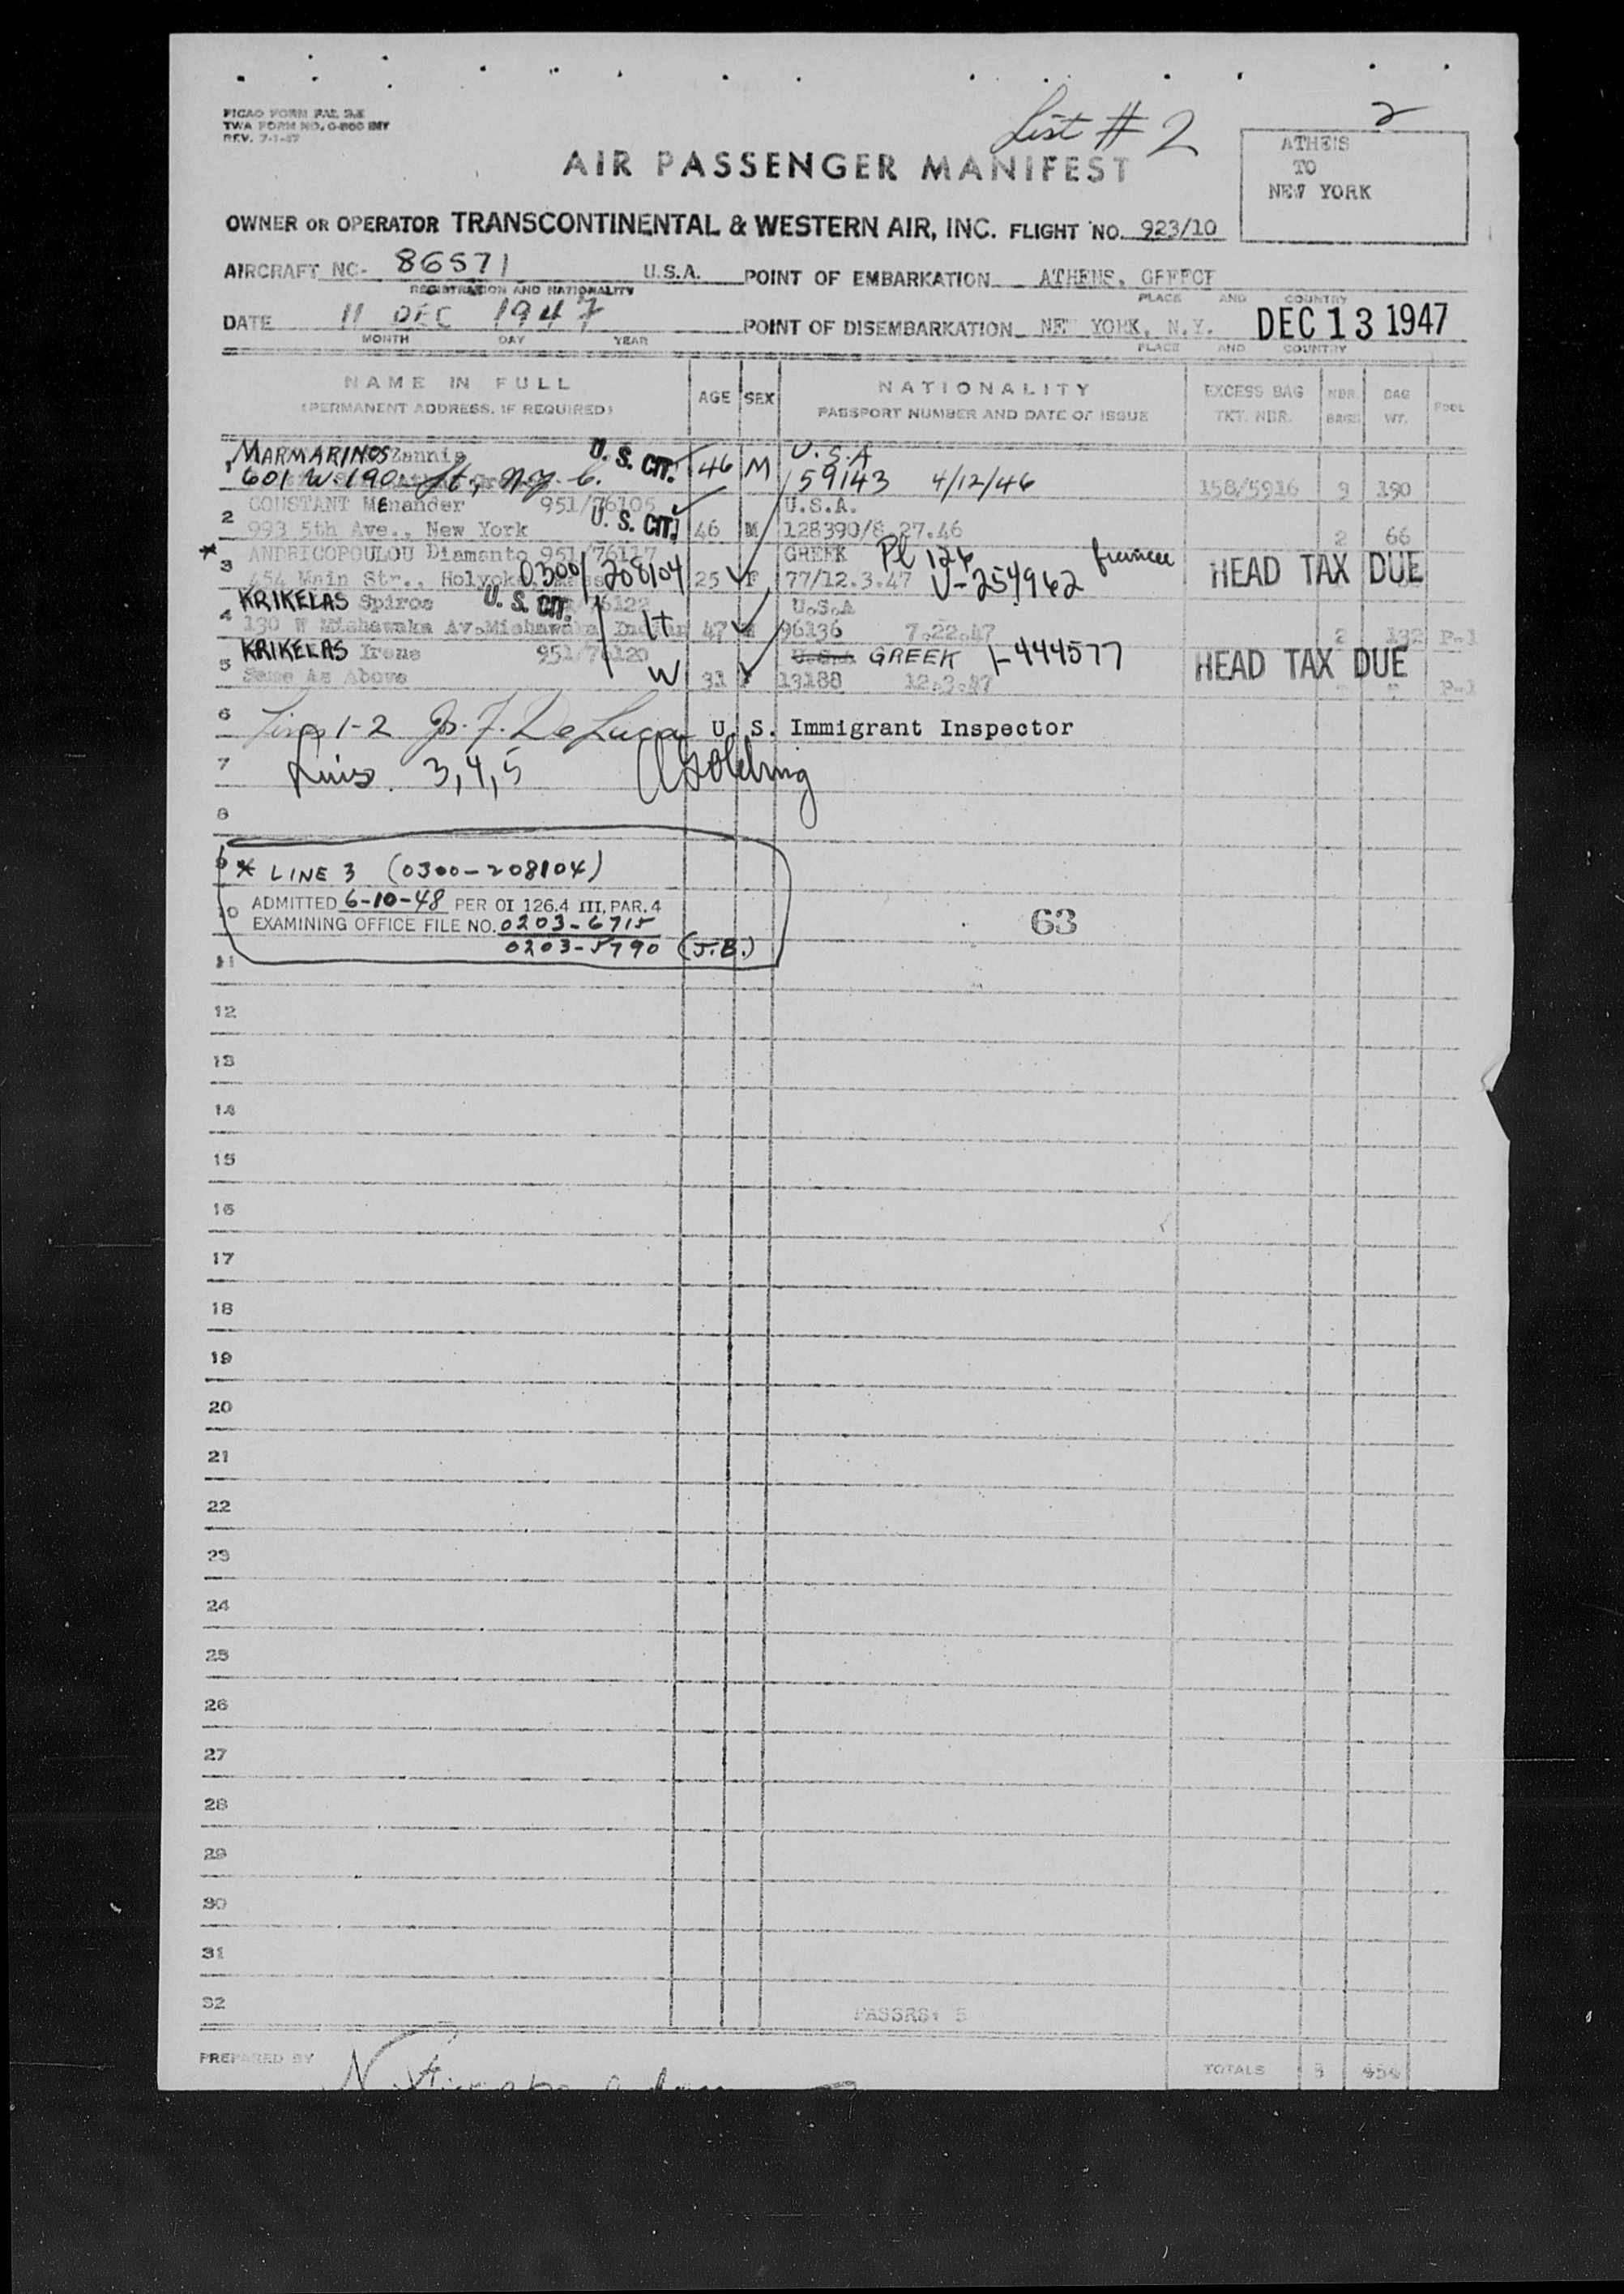 PICAO FORM PAL 2.5
TWA FORM NO. O-800 INT
REV. 7-1-47
List # 2
2
ATHENS
TO
NEW YORK
AIR PASSENGER MANIFEST
OWNER OR OPERATOR TRANSCONTINENTAL & WESTERN AIR, INC. FLIGHT NO. 923/10
AIRCRAFT NC- 86571 U.S.A. POINT OF EMBARKATION ATHENS, GREECE
REGISTRATION AND NATIONALITY PLACE AND COUNTRY
DATE 11 DEC 1947 POINT OF DISEMBARKATION NEW YORK, N.Y. DEC 13 1947
MONTH DAY YEAR PLACE AND COUNTRY
NAME IN FULL AGE SEX NATIONALITY EXCESS BAG NBR. BAG POOL
(PERMANENT ADDRESS, IF REQUIRED) PASSPORT NUMBER AND DATE OF ISSUE TKT. NBR. BAGS WT.
1 MARMARINOS Zannis U. S. CIT. 46 M U.S.A
601 W 190 St, N.Y. C. 159143 4/12/46 158/5916 9 190
2 CONSTANT Menander 951/76105 U.S.A.
993 5th Ave., New York U. S. CIT. 46 M 128390/8.27.46 2 66
* 3 ANDRICOPOULOU Diamanto 951/76117 GREEK Pl 126
454 Main Str., Holyoke, Mass 0300/208104 25 F 77/12.3.47 V-254962 HEAD TAX DUE
4 KRIKELAS Spiros U. S. CIT. /76122 U.S.A
130 W Mishawaka Av. Mishawaka Indian H 47 M 96136 7.22.47 2 132 P-1
5 KRIKELAS Irene 951/76120 U.S.A GREEK I-444577
Same As Above W 31 F 13188 12.3.47 HEAD TAX DUE - " P-1
6 Lines 1-2 Jos. F. DeLuca U. S. Immigrant Inspector
7 Lines 3,4,5 Goldring
8
9 * LINE 3 (0300-208104)
10 ADMITTED 6-10-48 PER OI 126.4 III, PAR. 4
EXAMINING OFFICE FILE NO. 0203-6715
63
11 0203-5790 (J.B.)
12
13
14
15
16
17
18
19
20
21
22
23
24
25
26
27
28
29
30
31
32 PASSRS: 5
PREPARED BY TOTALS